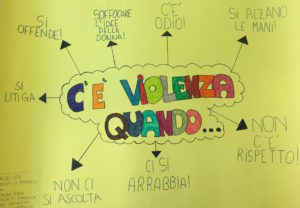 SI
OFFENDE!
SOFFOCARE
L'IDEE
DELLA
DONNA!
C'È
ODIO!
SI ALZANO
LE MANI!
SI
LITIGA
C'È VIOLENZA
QUANDO...
NON
C'È
RISPETTO!
CI SI
ARRABBIA!
NON CI
SI ASCOLTA